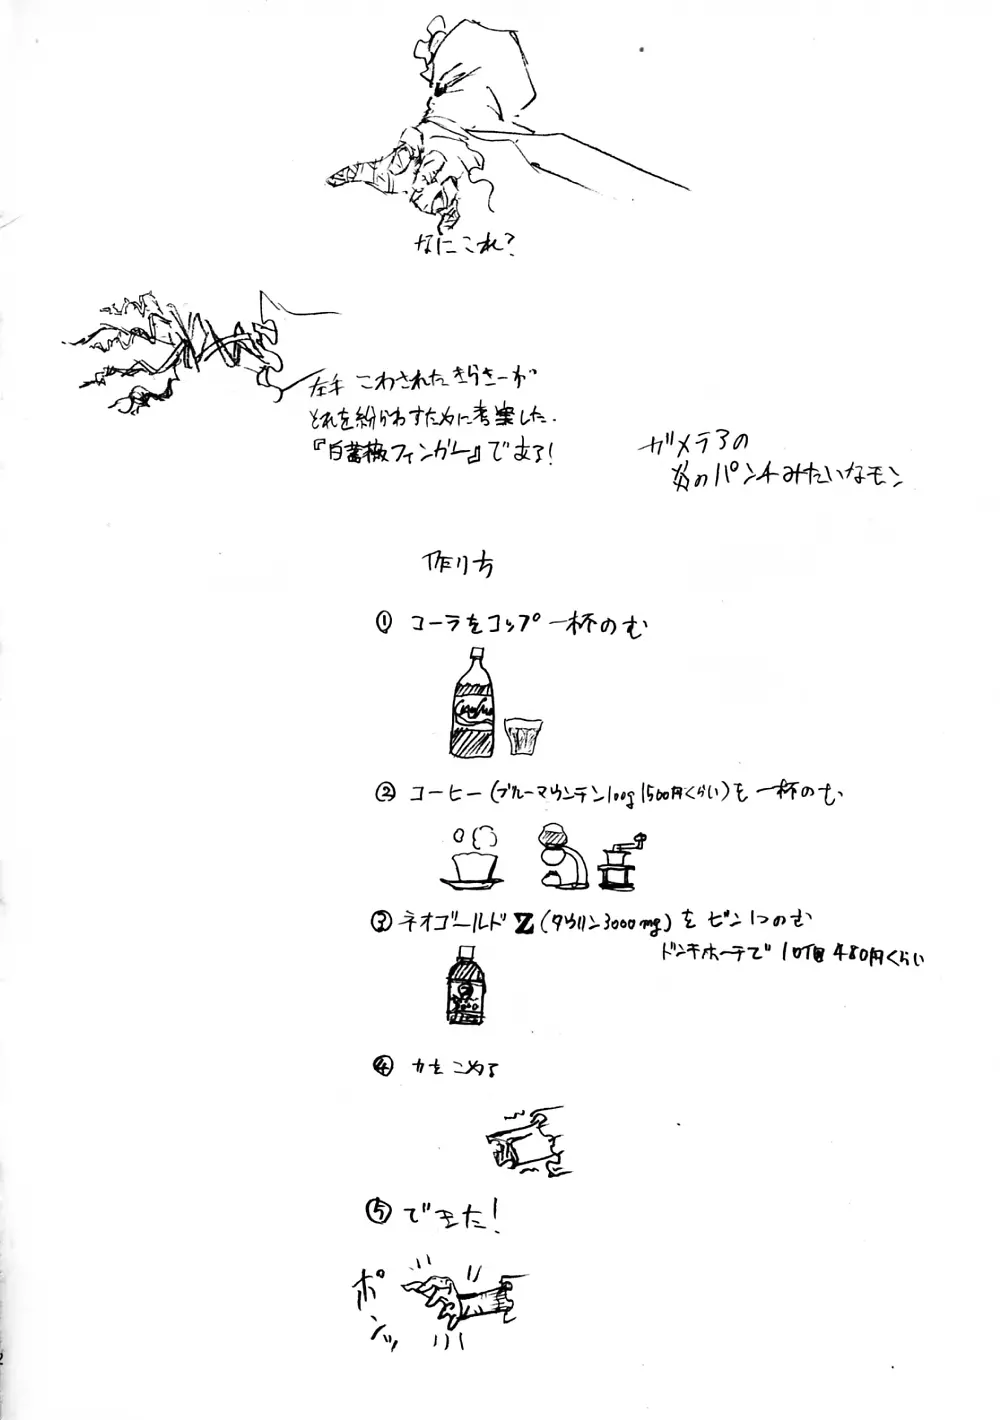 なにこれ?
左手 こわされたきらきーが
それを紛らわすために考案した.
『白薔薇フィンガー』である!
ガメラ3の
炎のパンチみたいなモン
作り方
① コーラをコップ一杯のむ
② コーヒー(ブルーマウンテン100g1500円くらい)も一杯のむ
③ ネオゴールドZ(タウリン3000mg)をビン1つのむ
ドンキホーテで10個480円くらい
④ 力をこめる
⑤ できた!
ポンッ
2